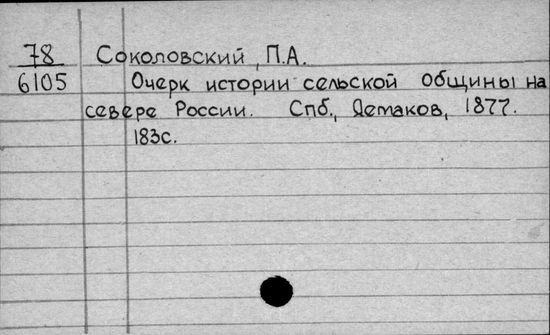 78 Соколовский, П.А.
6105 Очерк истории сельской общины на
севере России. Спб., Демаков, 1877.
183с.